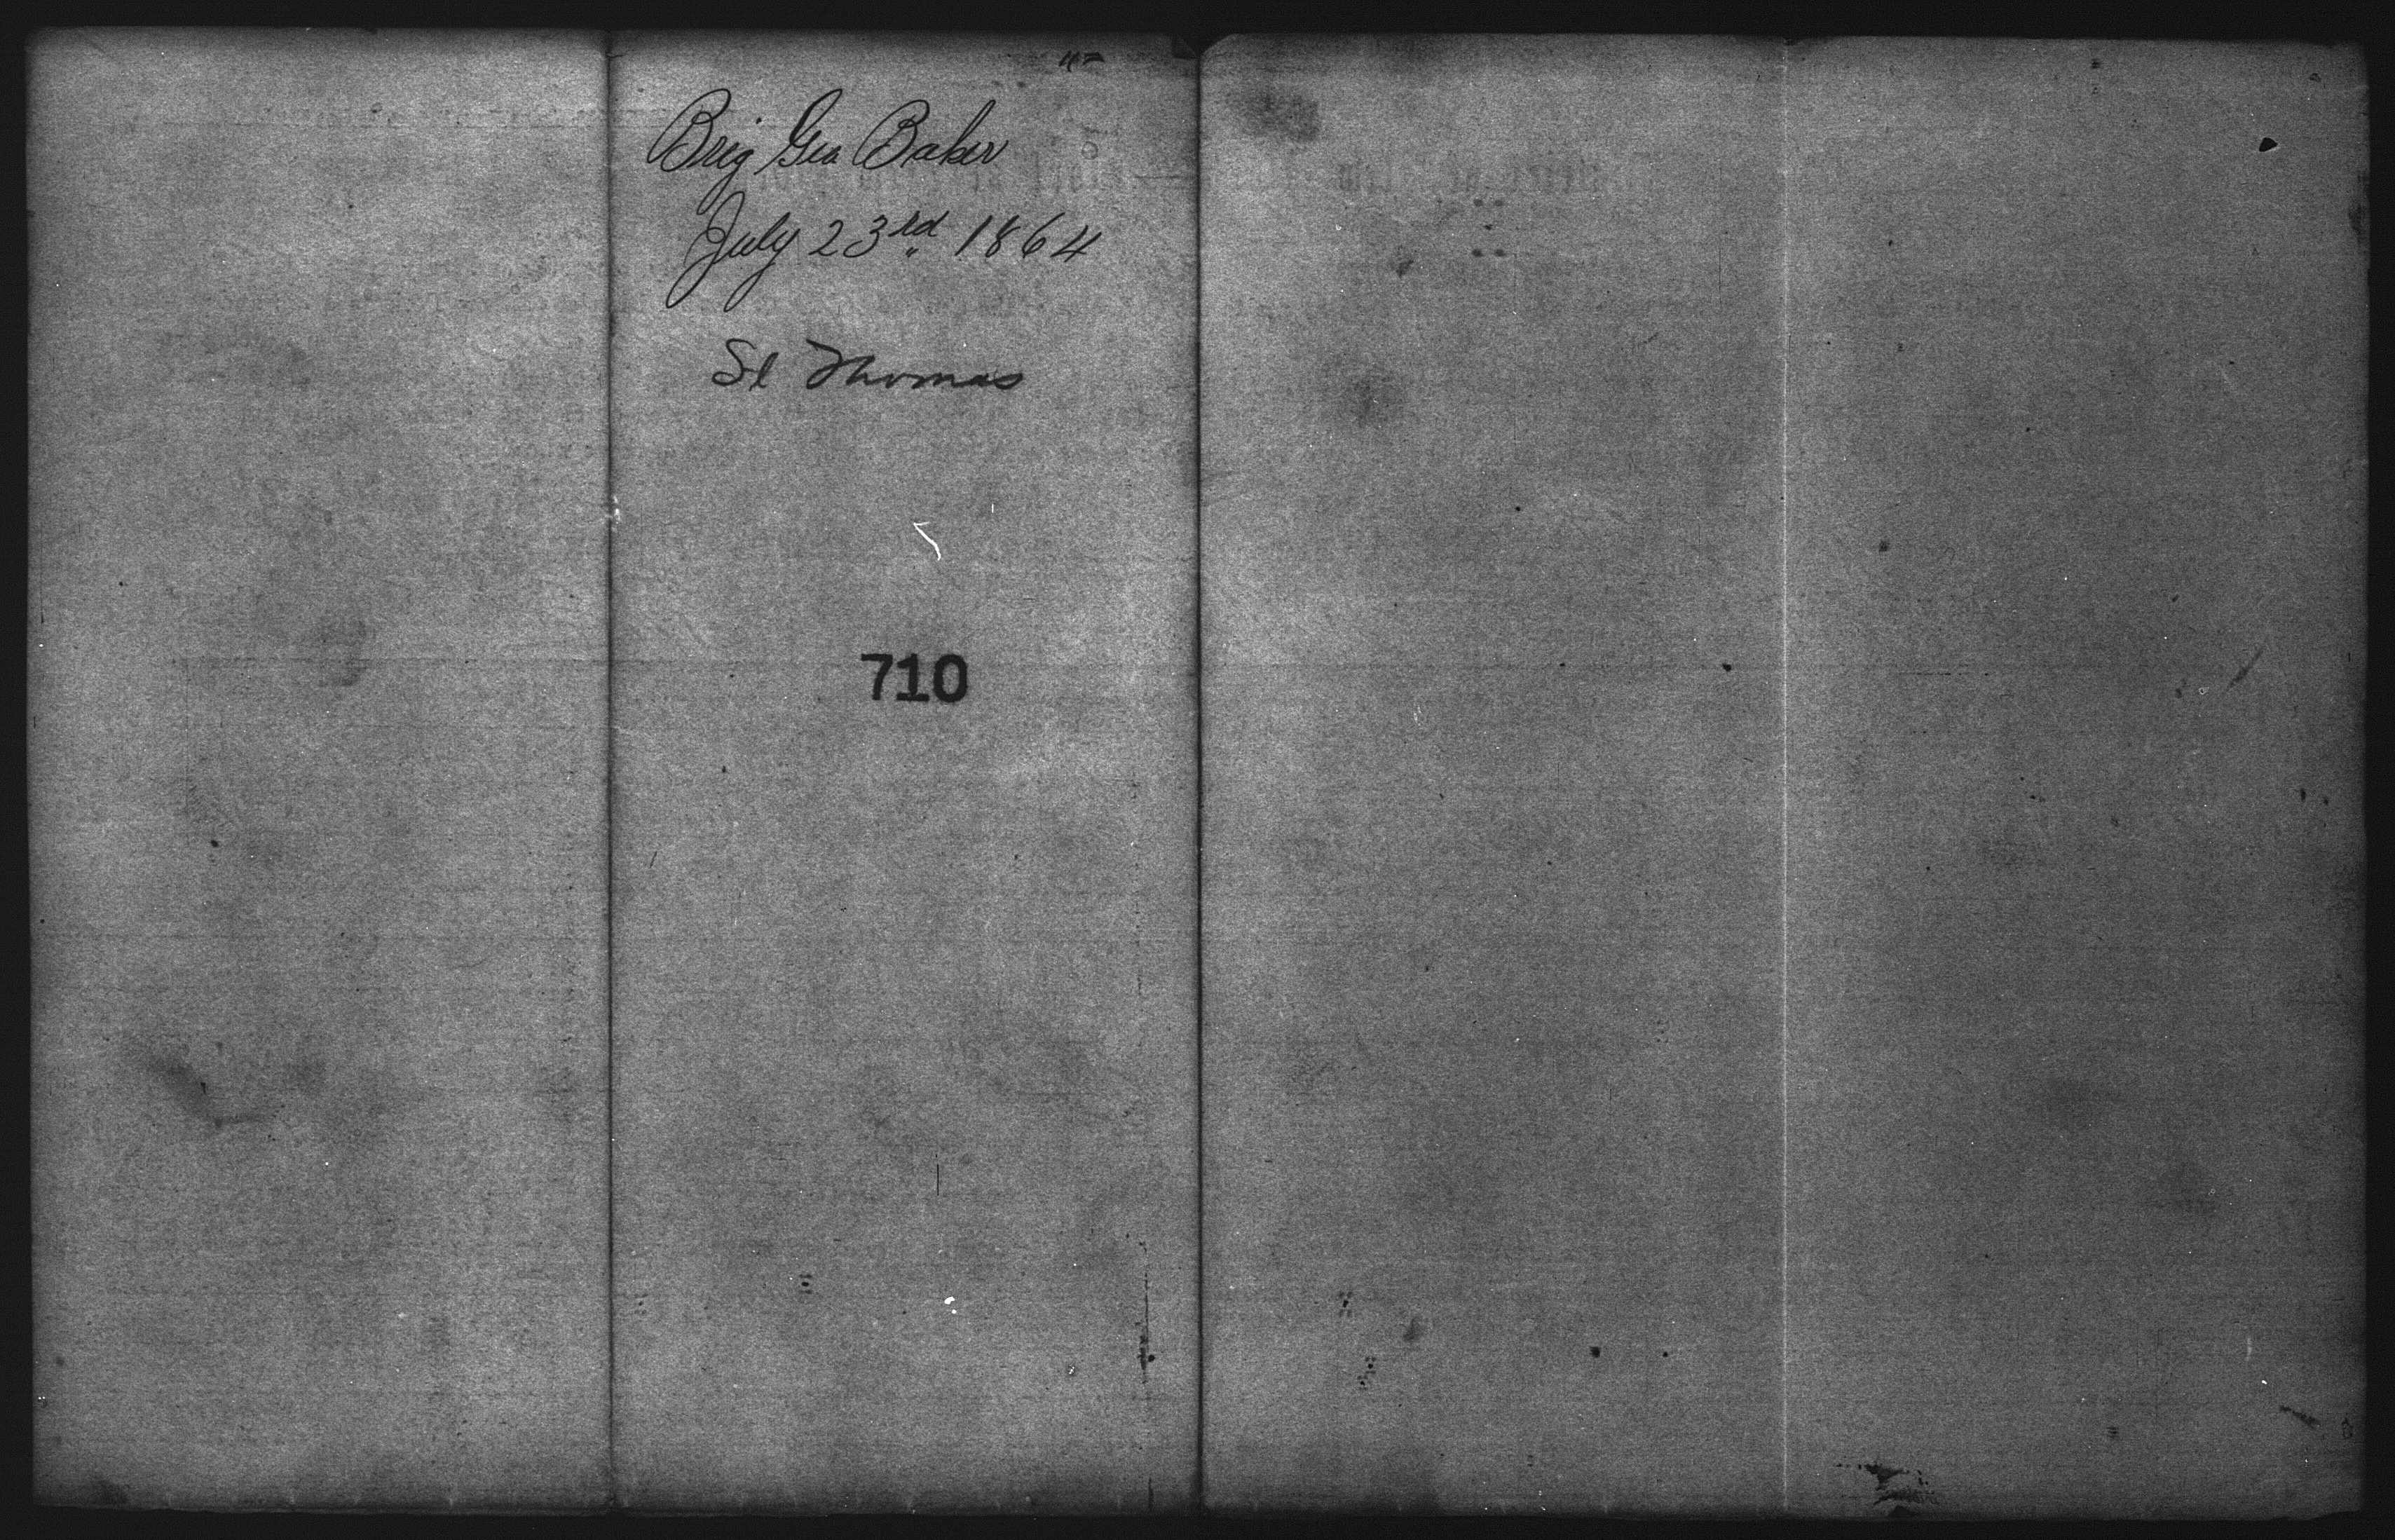 Brig Geo Baker
July 23rd 1864
St Thomas
710